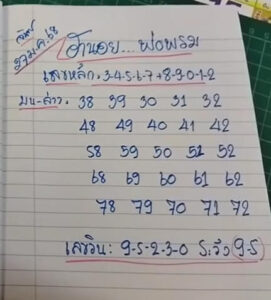 จันทร์
27 ม.ค. 68
ฮานอย... พ่อพรม
เลขหลัก : 3-4-5-6-7+8-9-0-1-2
บน-ล่าง. 38 39 30 31 32
48 49 40 41 42
58 59 50 51 52
68 69 60 61 62
78 79 70 71 72
เลขวิน: 9-5-2-3-0 ระวัง 9-5